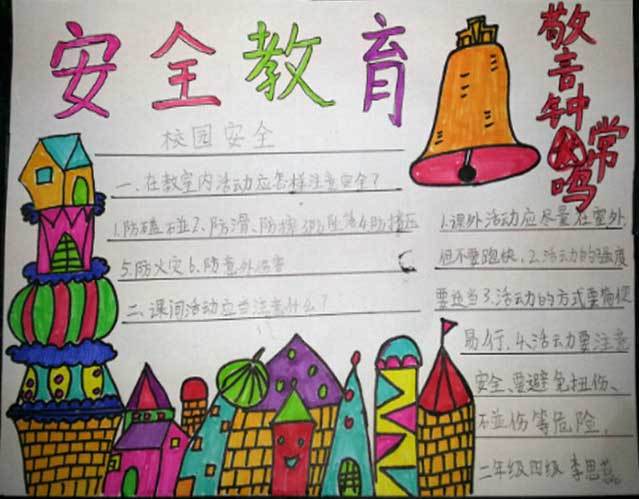 安全教育
警钟常鸣
校园安全
一、在教室内活动应怎样注意安全?
1.防磕碰2、防滑、防摔3防坠落4.防挤压
5.防火灾6.防意外伤害
二、课间活动应当注意什么?
1.课外活动应尽量在室外,
但不要跑快、2、活动的强度
要适当3、活动的方式要简便
易行、4、活动要注意
安全、要避免扭伤、
碰伤等危险,
二年级四级 李思